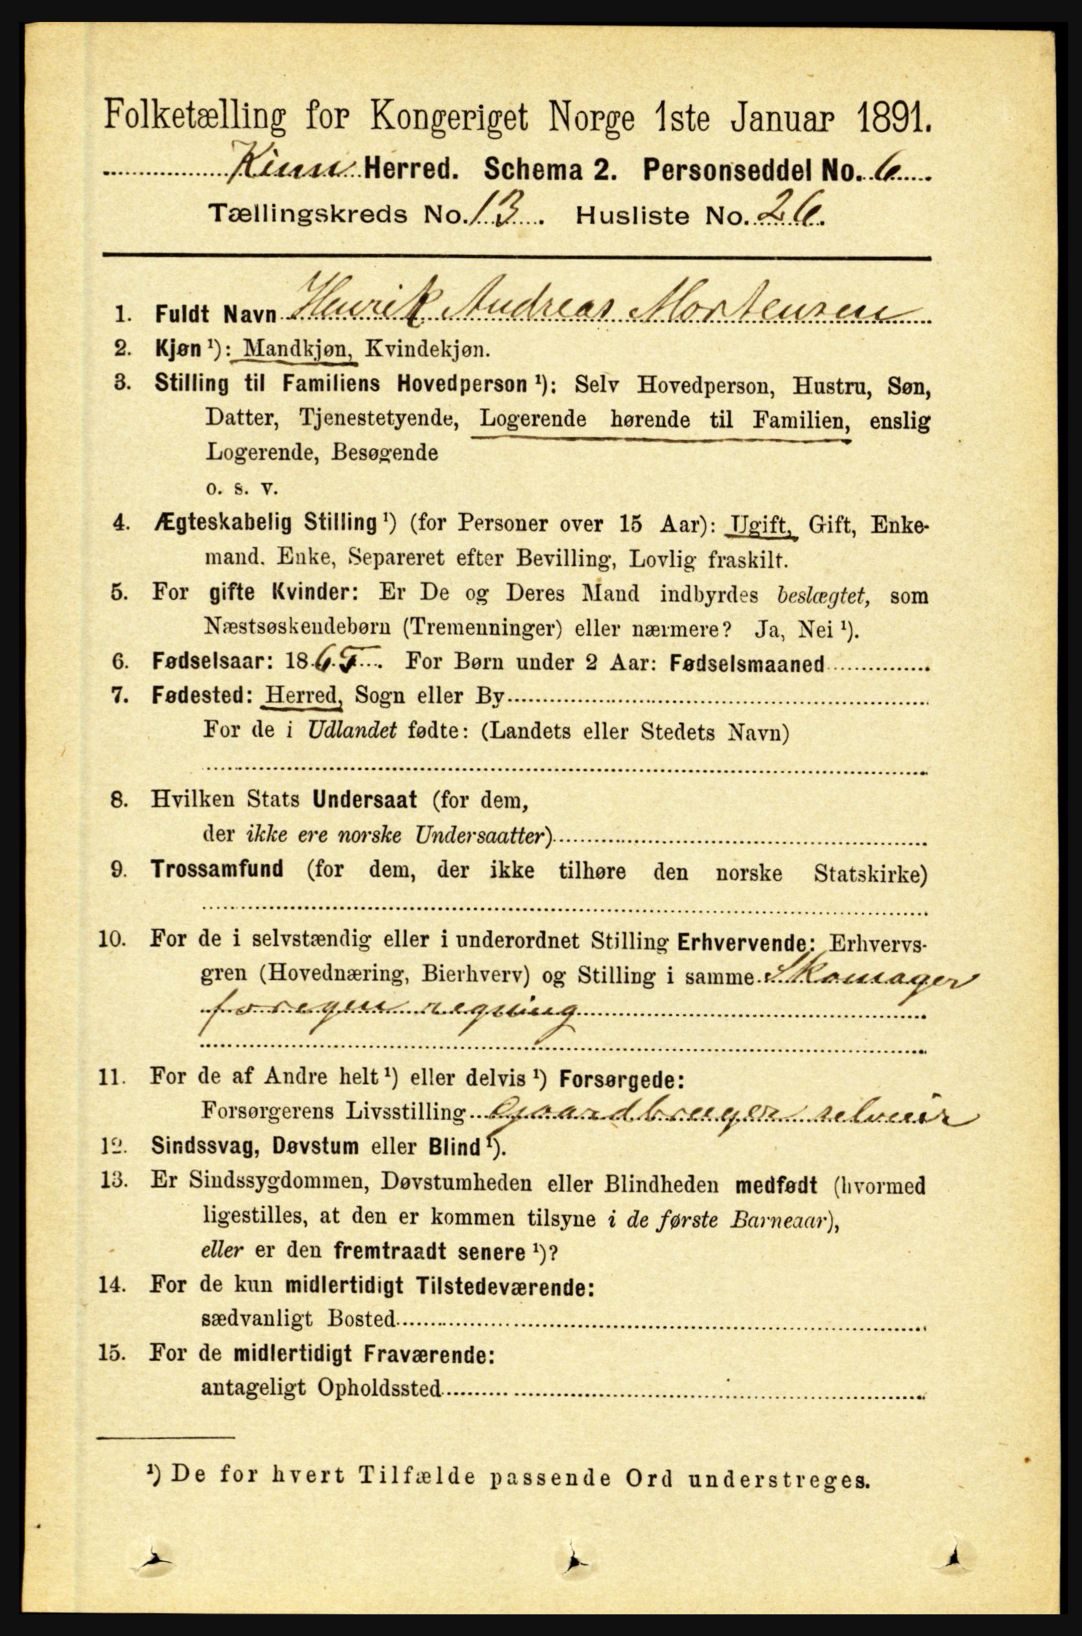 Folketælling for Kongeriget Norge 1ste Januar 1891.
Kinn Herred. Schema 2. Personseddel No. 6
Tællingskreds No. 13. Husliste No. 26.
1. Fuldt Navn Henrik Andreas Mortensen
2. Kjøn ¹): Mandkjøn, Kvindekjøn.
3. Stilling til Familiens Hovedperson ¹): Selv Hovedperson, Hustru, Søn,
Datter, Tjenestetyende, Logerende hørende til Familien, enslig
Logerende, Besøgende
o. s. v.
4. Ægteskabelig Stilling ¹) (for Personer over 15 Aar): Ugift, Gift, Enke-
mand, Enke, Separeret efter Bevilling, Lovlig fraskilt.
5. For gifte Kvinder: Er De og Deres Mand indbyrdes beslægtet, som
Næstsøskendebørn (Tremenninger) eller nærmere? Ja, Nei ¹).
6. Fødselsaar: 1865. For Børn under 2 Aar: Fødselsmaaned
7. Fødested: Herred, Sogn eller By
For de i Udlandet fødte: (Landets eller Stedets Navn)
8. Hvilken Stats Undersaat (for dem,
der ikke ere norske Undersaatter)
9. Trossamfund (for dem, der ikke tilhøre den norske Statskirke)
10. For de i selvstændig eller i underordnet Stilling Erhvervende: Erhvervs-
gren (Hovednæring, Bierhverv) og Stilling i samme Skomager
for egen regning
11. For de af Andre helt ¹) eller delvis ¹) Forsørgede:
Forsørgerens Livsstilling Gaardbruger selveier
12. Sindssvag, Døvstum eller Blind ¹).
13. Er Sindssygdommen, Døvstumheden eller Blindheden medfødt (hvormed
ligestilles, at den er kommen tilsyne i de første Barneaar),
eller er den fremtraadt senere ¹)?
14. For de kun midlertidigt Tilstedeværende:
sædvanligt Bosted
15. For de midlertidigt Fraværende:
antageligt Opholdssted
¹) De for hvert Tilfælde passende Ord understreges.